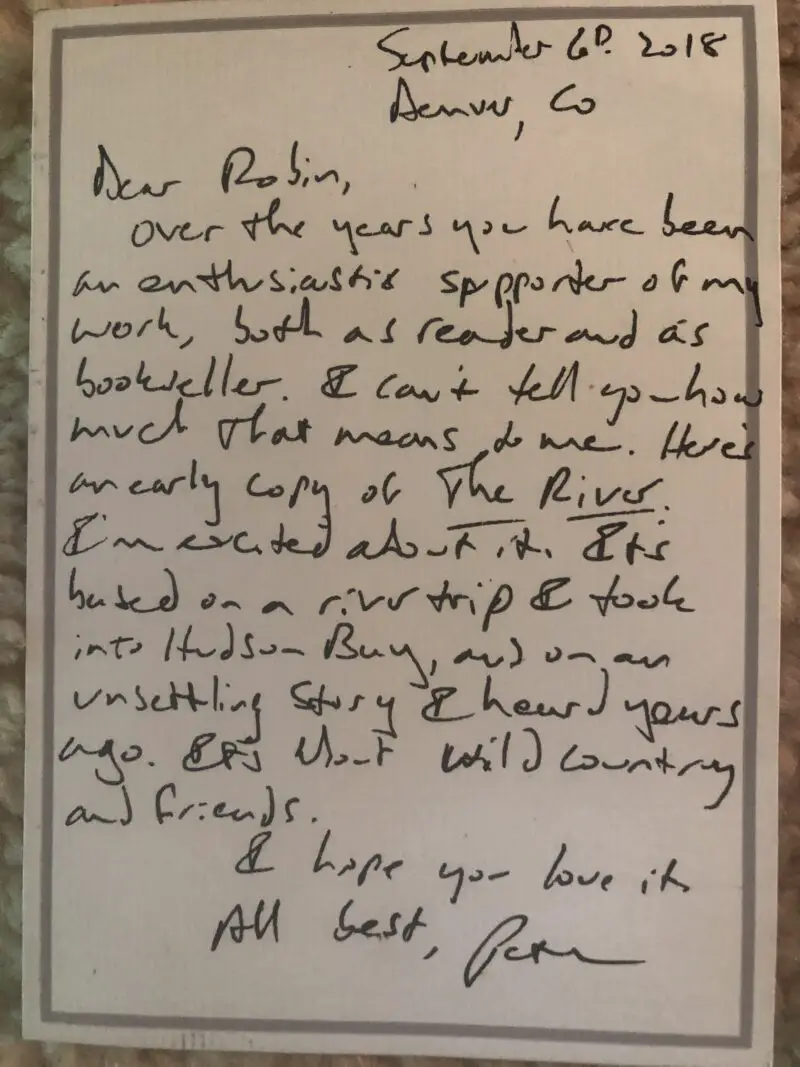 September 6th. 2018
Denver, Co
Dear Robin,
over the years you have been
an enthusiastic supporter of my
work, both as reader and as
bookseller. I can't tell you how
much that means to me. Here's
an early copy of The River.
I'm excited about it. It's
based on a river trip I took
into Hudson Bay, and on an
unsettling story I heard years
ago. It's about wild country
and friends.
I hope you love it.
All best, Peter